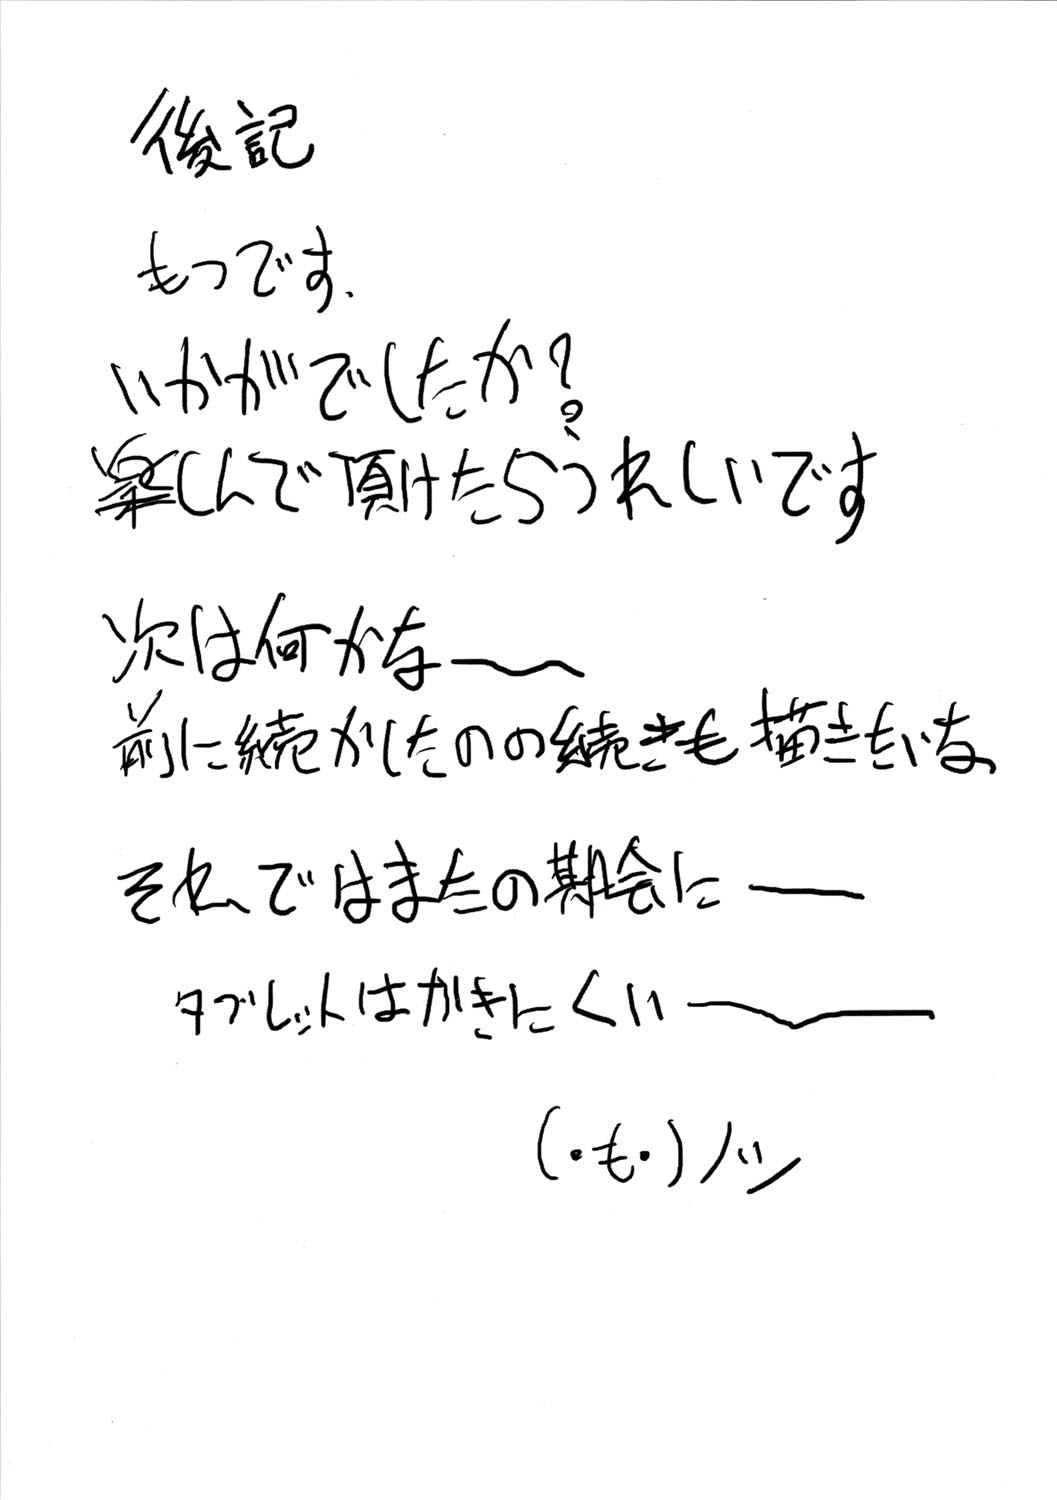 後記
もつです.
いかがでしたか?
楽しんで頂けたらうれしいです
次は何かな〜
前に続かしたのの続きも描きたいな
それではまたの期会に―
タブレットはかきにくい〜
(・も・)ノシ